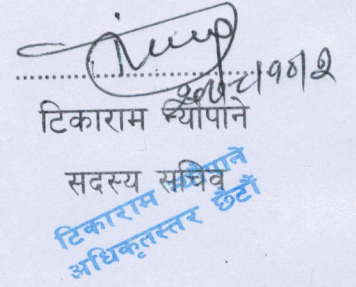 २०७८/१०/२
टिकाराम न्यौपाने
सदस्य सचिव
टिकाराम न्यौपाने
अधिकृतस्तर छैटौं